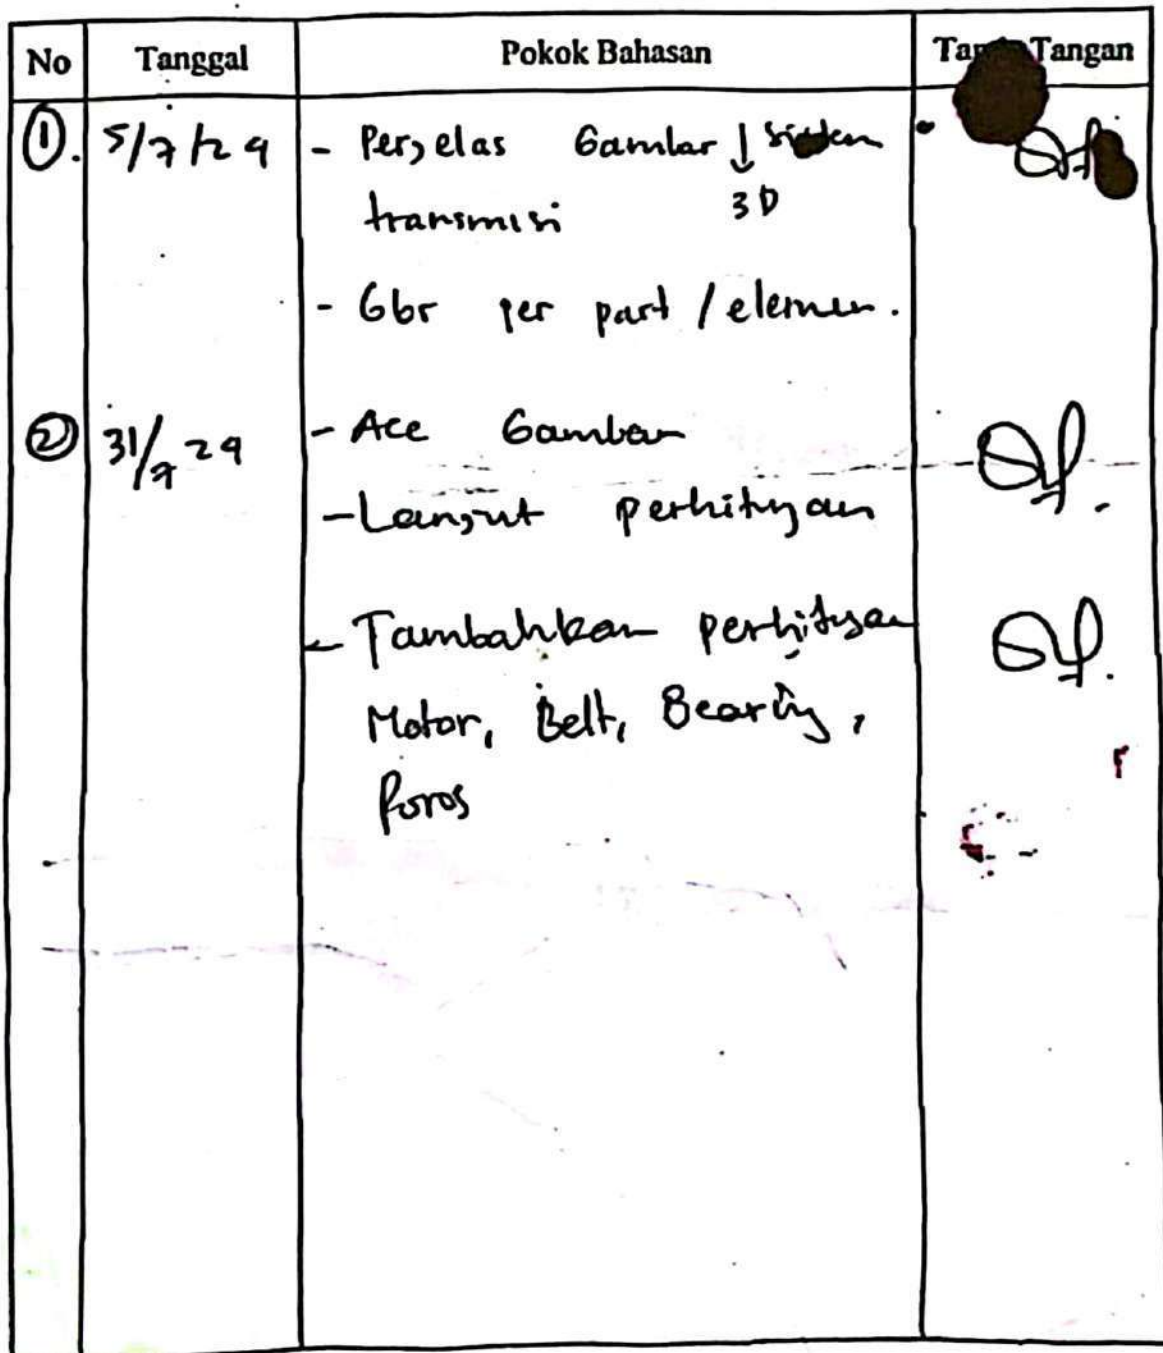 No Tanggal Pokok Bahasan Tanda Tangan
1. 5/7/24 - Perjelas Gambar ↓ sistem
transmisi 3D
- Gbr per part / elemen.
2 31/7 24 - Acc Gambar
- Lanjut perhitungan
- Tambahkan perhitungan
Motor, Belt, Bearing,
Poros